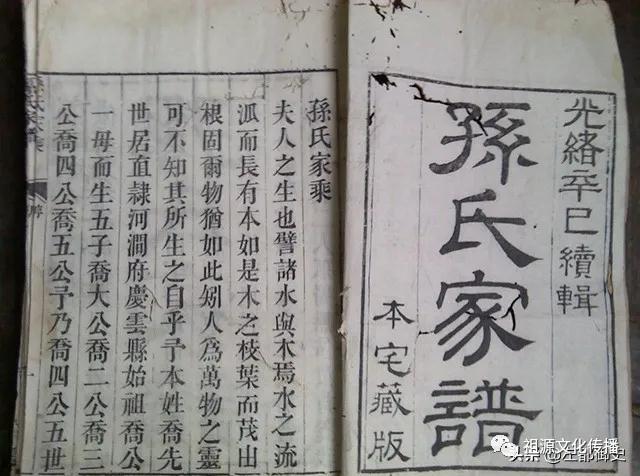 光緒辛巳續輯
孫氏家譜
本宅藏版
孫氏家乘
夫人之生也譬諸水與木焉水之流
泒而長有本如是木之枝葉而茂出
根固爾物猶如此矧人爲萬物之靈
可不知其所生之自乎予本姓喬先
世居直隸河澗府慶雲縣始祖喬公
一母而生五子喬大公喬二公喬三
公喬四公喬五公予乃喬四公五世
祖源文化传播
头条@左都御史